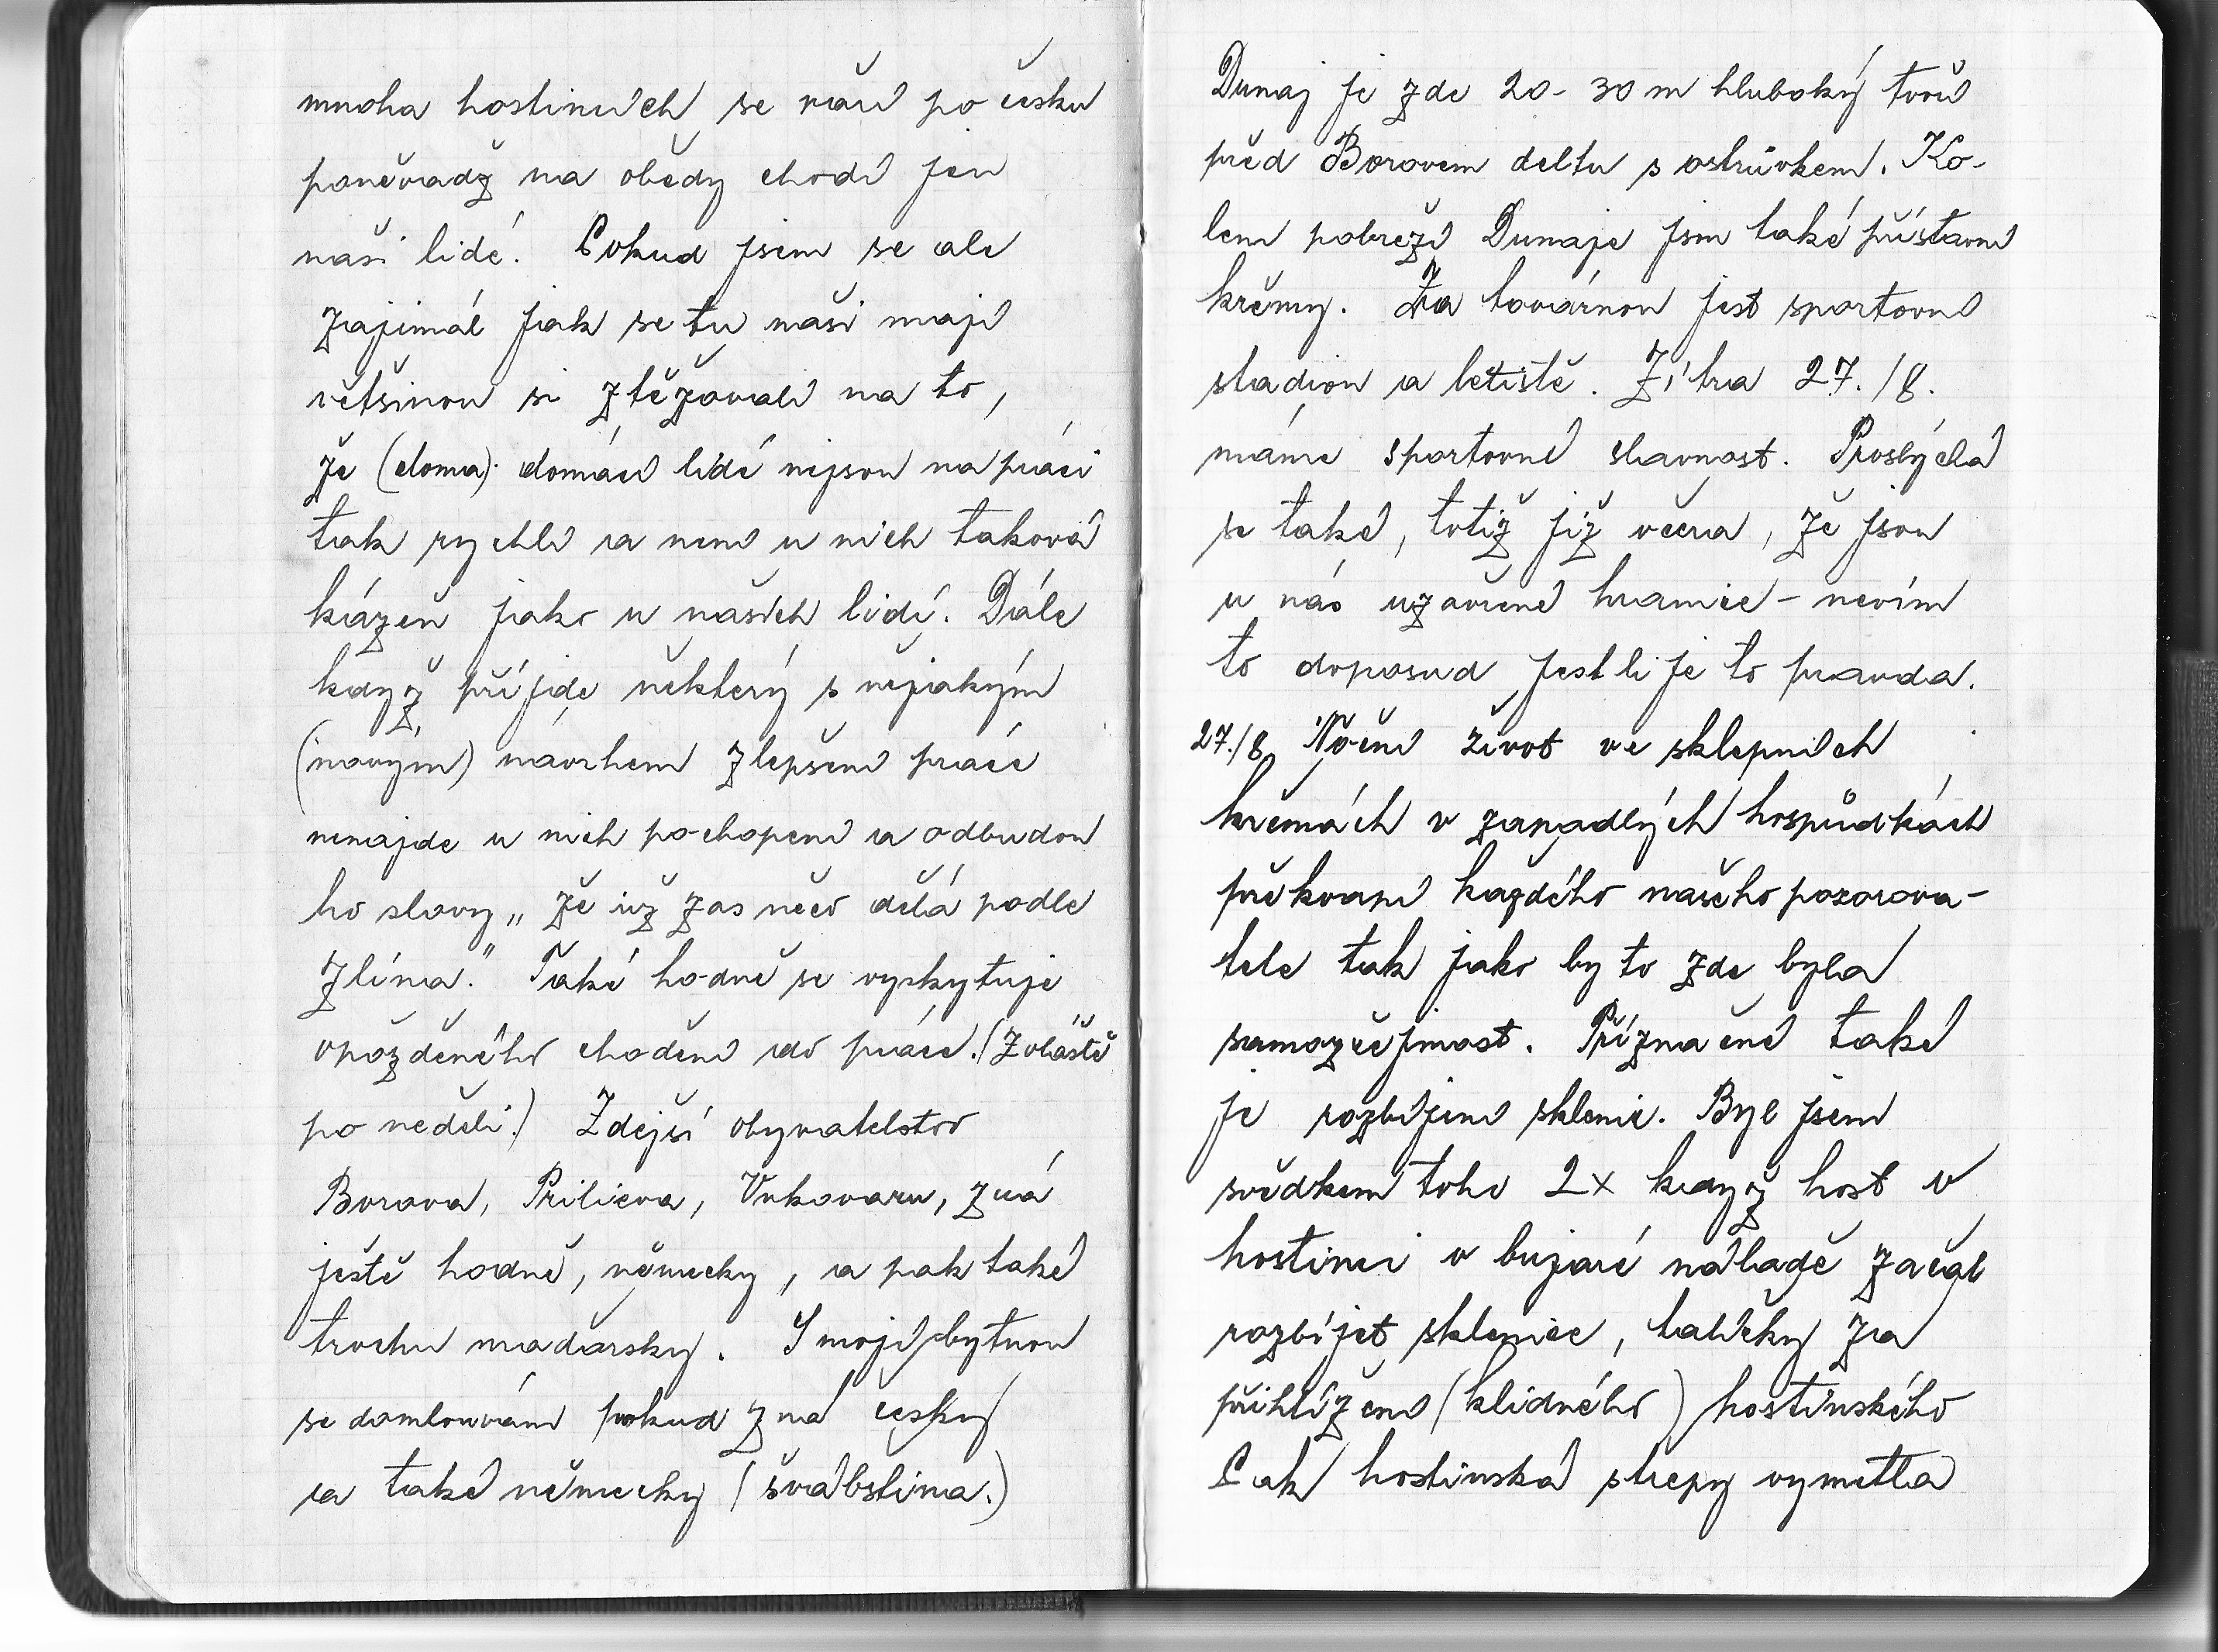 mnoha hostincích se vaří po česku
poněvadž na obědy chodí jen
naši lidé. Pokud jsem se ale
zajímal jak se tu naši mají
většinou si ztěžovali na to,
že (doma) domácí lidé nejsou na práci
tak rychlí a není u nich taková
kázeň jako u našich lidí. Dále
když příjde některý s nějakým
(novým) návrhem zlepšení práce
nenajde u nich pochopení a odbudou
ho slovy „že už zas něco dělá podle
Zlína." Také hodně se vyskytuje
opožděného chodění do práce. (Zvláště
po neděli.) Zdejší obyvatelstvo
Borova, Prilieva, Vukovaru, zná
ještě hodně, německy, a pak také
trochu maďarsky. S mojí bytnou
se domlouvám pokud zná česky
a také německy (švábština.)
Dunaj je zde 20-30 m hluboký tvoří
před Borovem deltu s ostrůvkem. Ko-
lem pobřeží Dunaje jsou také přístavní
krčmy. Za továrnou jest sportovní
stadion a letiště. Zítra 27./8.
máme sportovní slavnost. Proslýchá
se také, totiž již včera, že jsou
u nás uzavřené hranice - nevím
to doposud jestli je to pravda.
27./8. Noční život ve sklepních
krčmách v zapadlých hospůdkách
překvapí každého našeho pozorova-
tele tak jako by to zde byla
samozřejmost. Příznačné také
je rozbíjení sklenic. Byl jsem
svědkem toho 2x když host v
hostinci v bujaré náladě začal
rozbíjet sklenice, talířky za
přihlížení (klidného) hostinského
Pak hostinská střepy vymetla